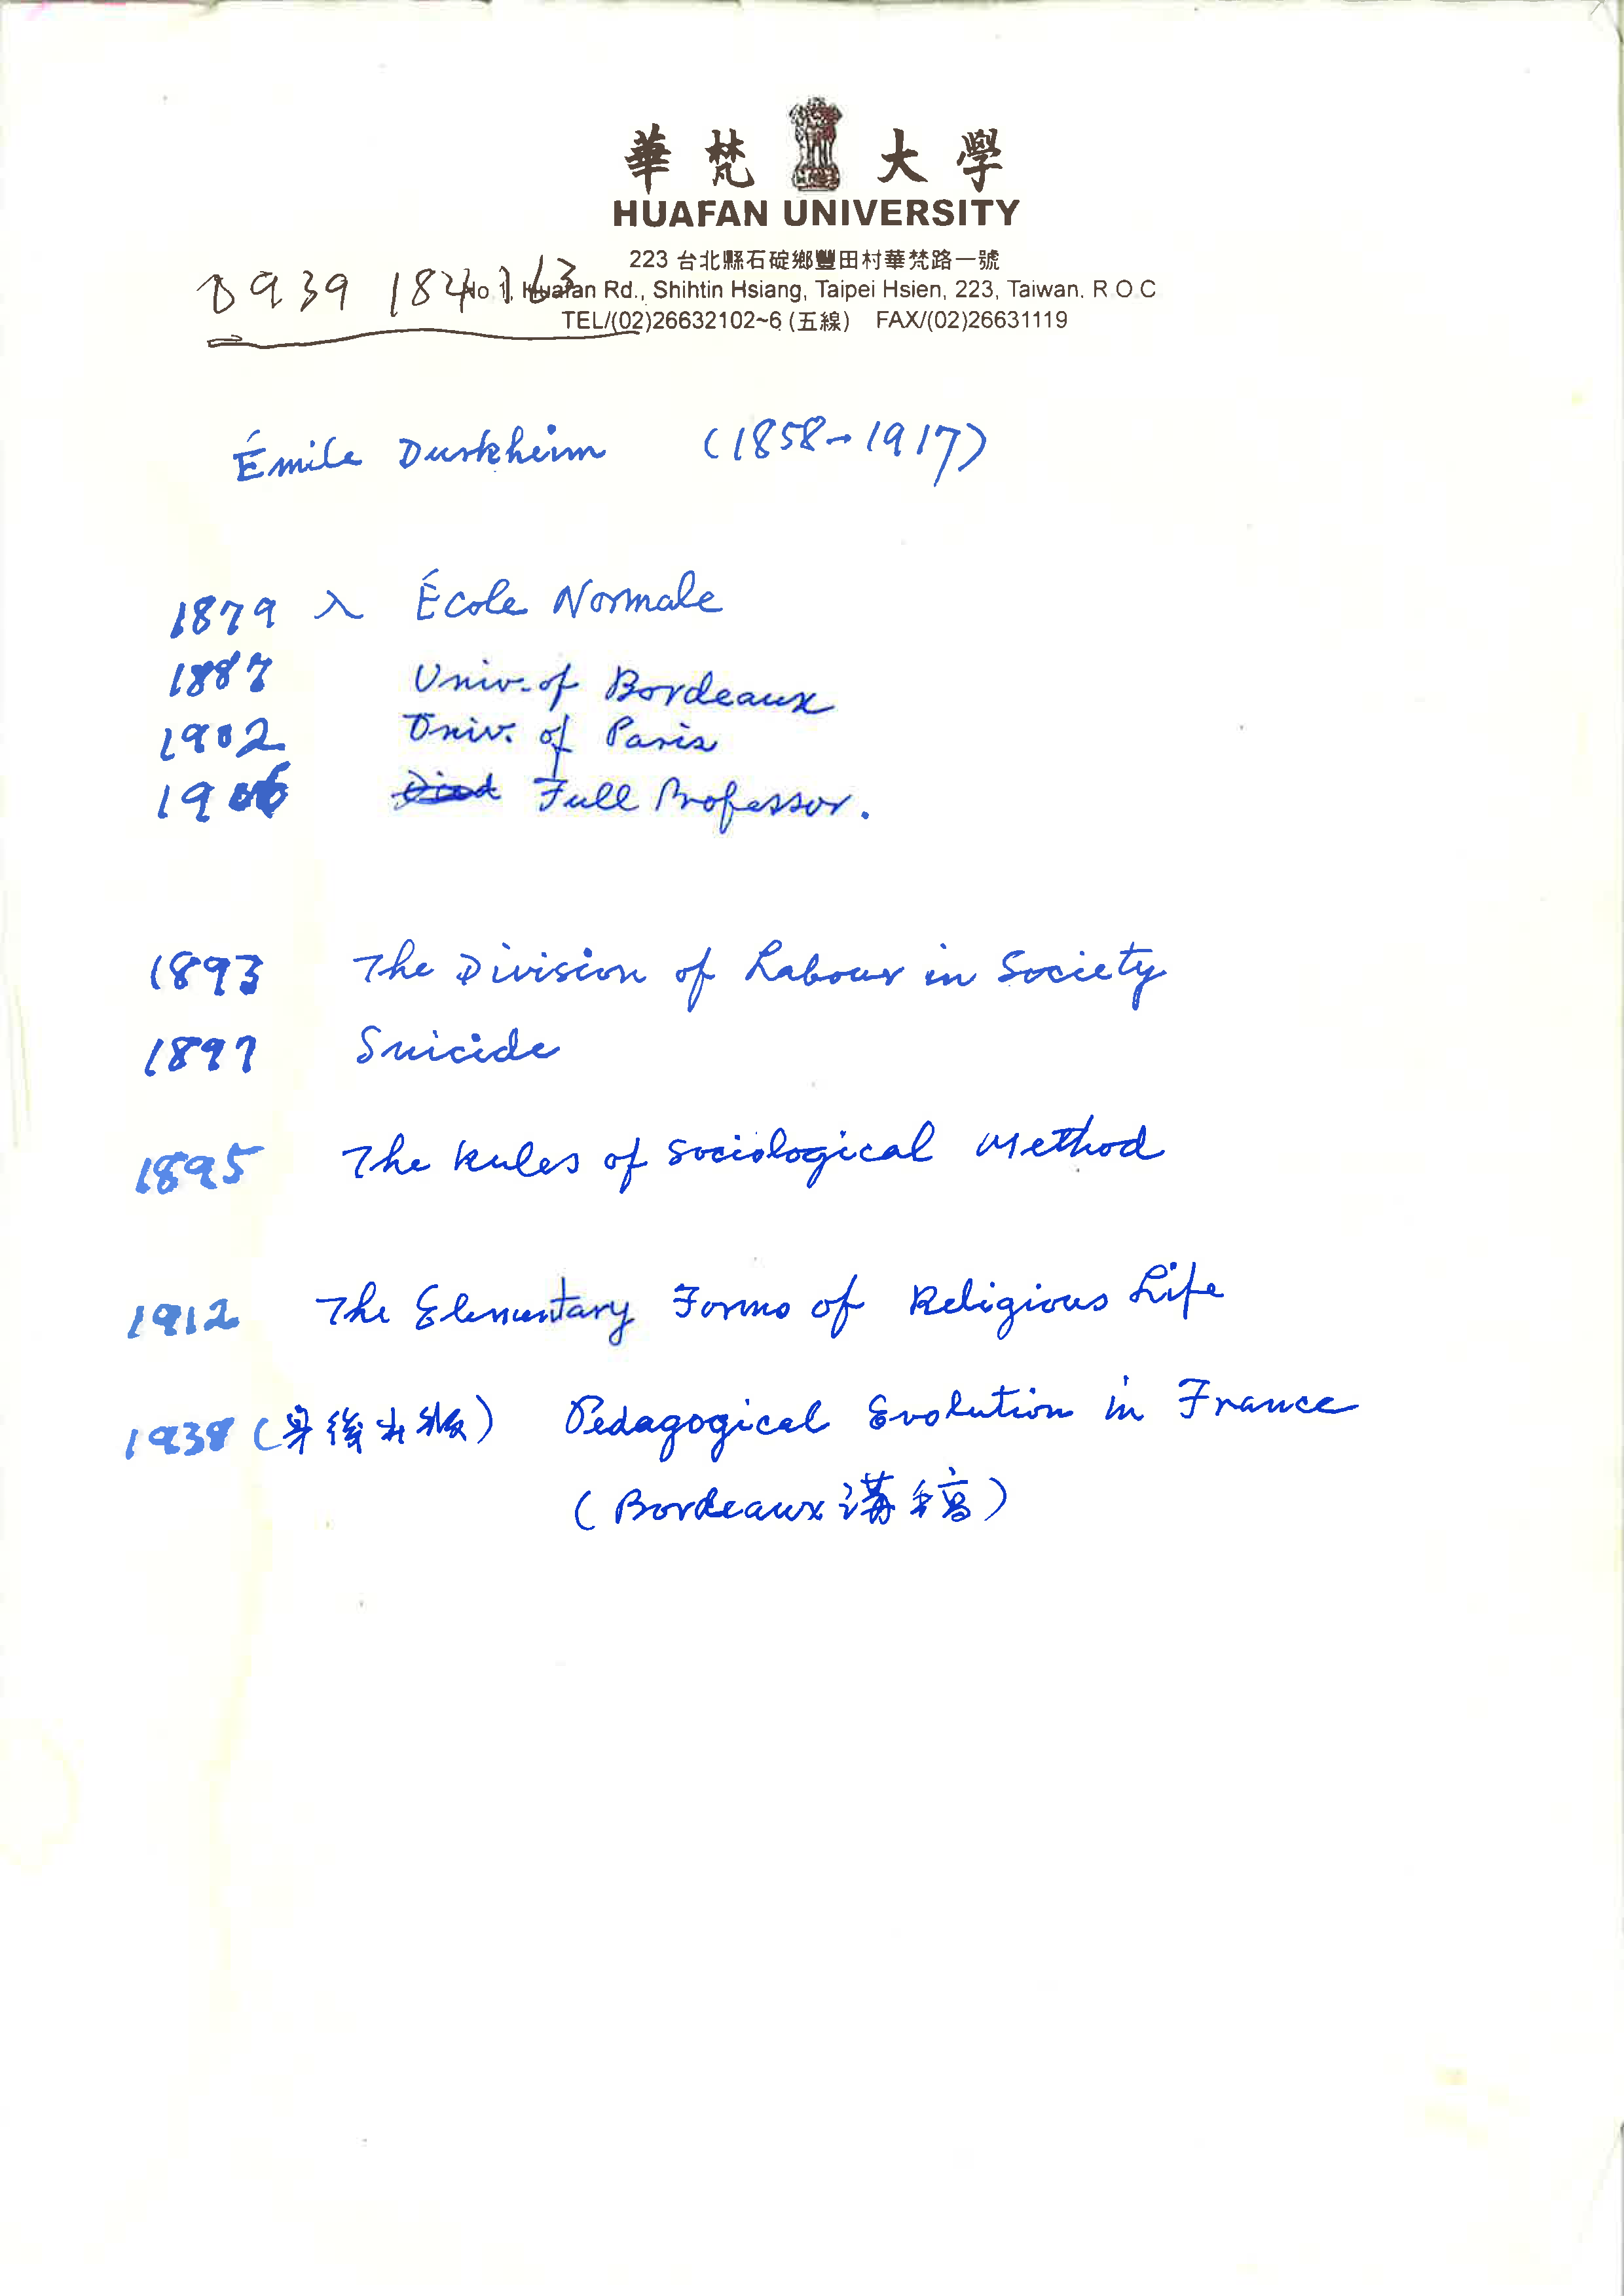 華梵大學
HUAFAN UNIVERSITY
223 台北縣石碇鄉豐田村華梵路一號
0939 184 163
No 1, Huafan Rd., Shihtin Hsiang, Taipei Hsien, 223, Taiwan. R O C
TEL/(02)26632102~6 (五線) FAX/(02)26631119
Émile Durkheim (1858-1917)
1879 入 École Normale
1887 Univ. of Bordeaux
1902 Univ. of Paris
1906 Died Full Professor.
1893 The Division of Labour in Society
1897 Suicide
1895 The Rules of Sociological Method
1912 The Elementary Forms of Religious Life
1938 (身後出版) Pedagogical Evolution in France
(Bordeaux 講稿)